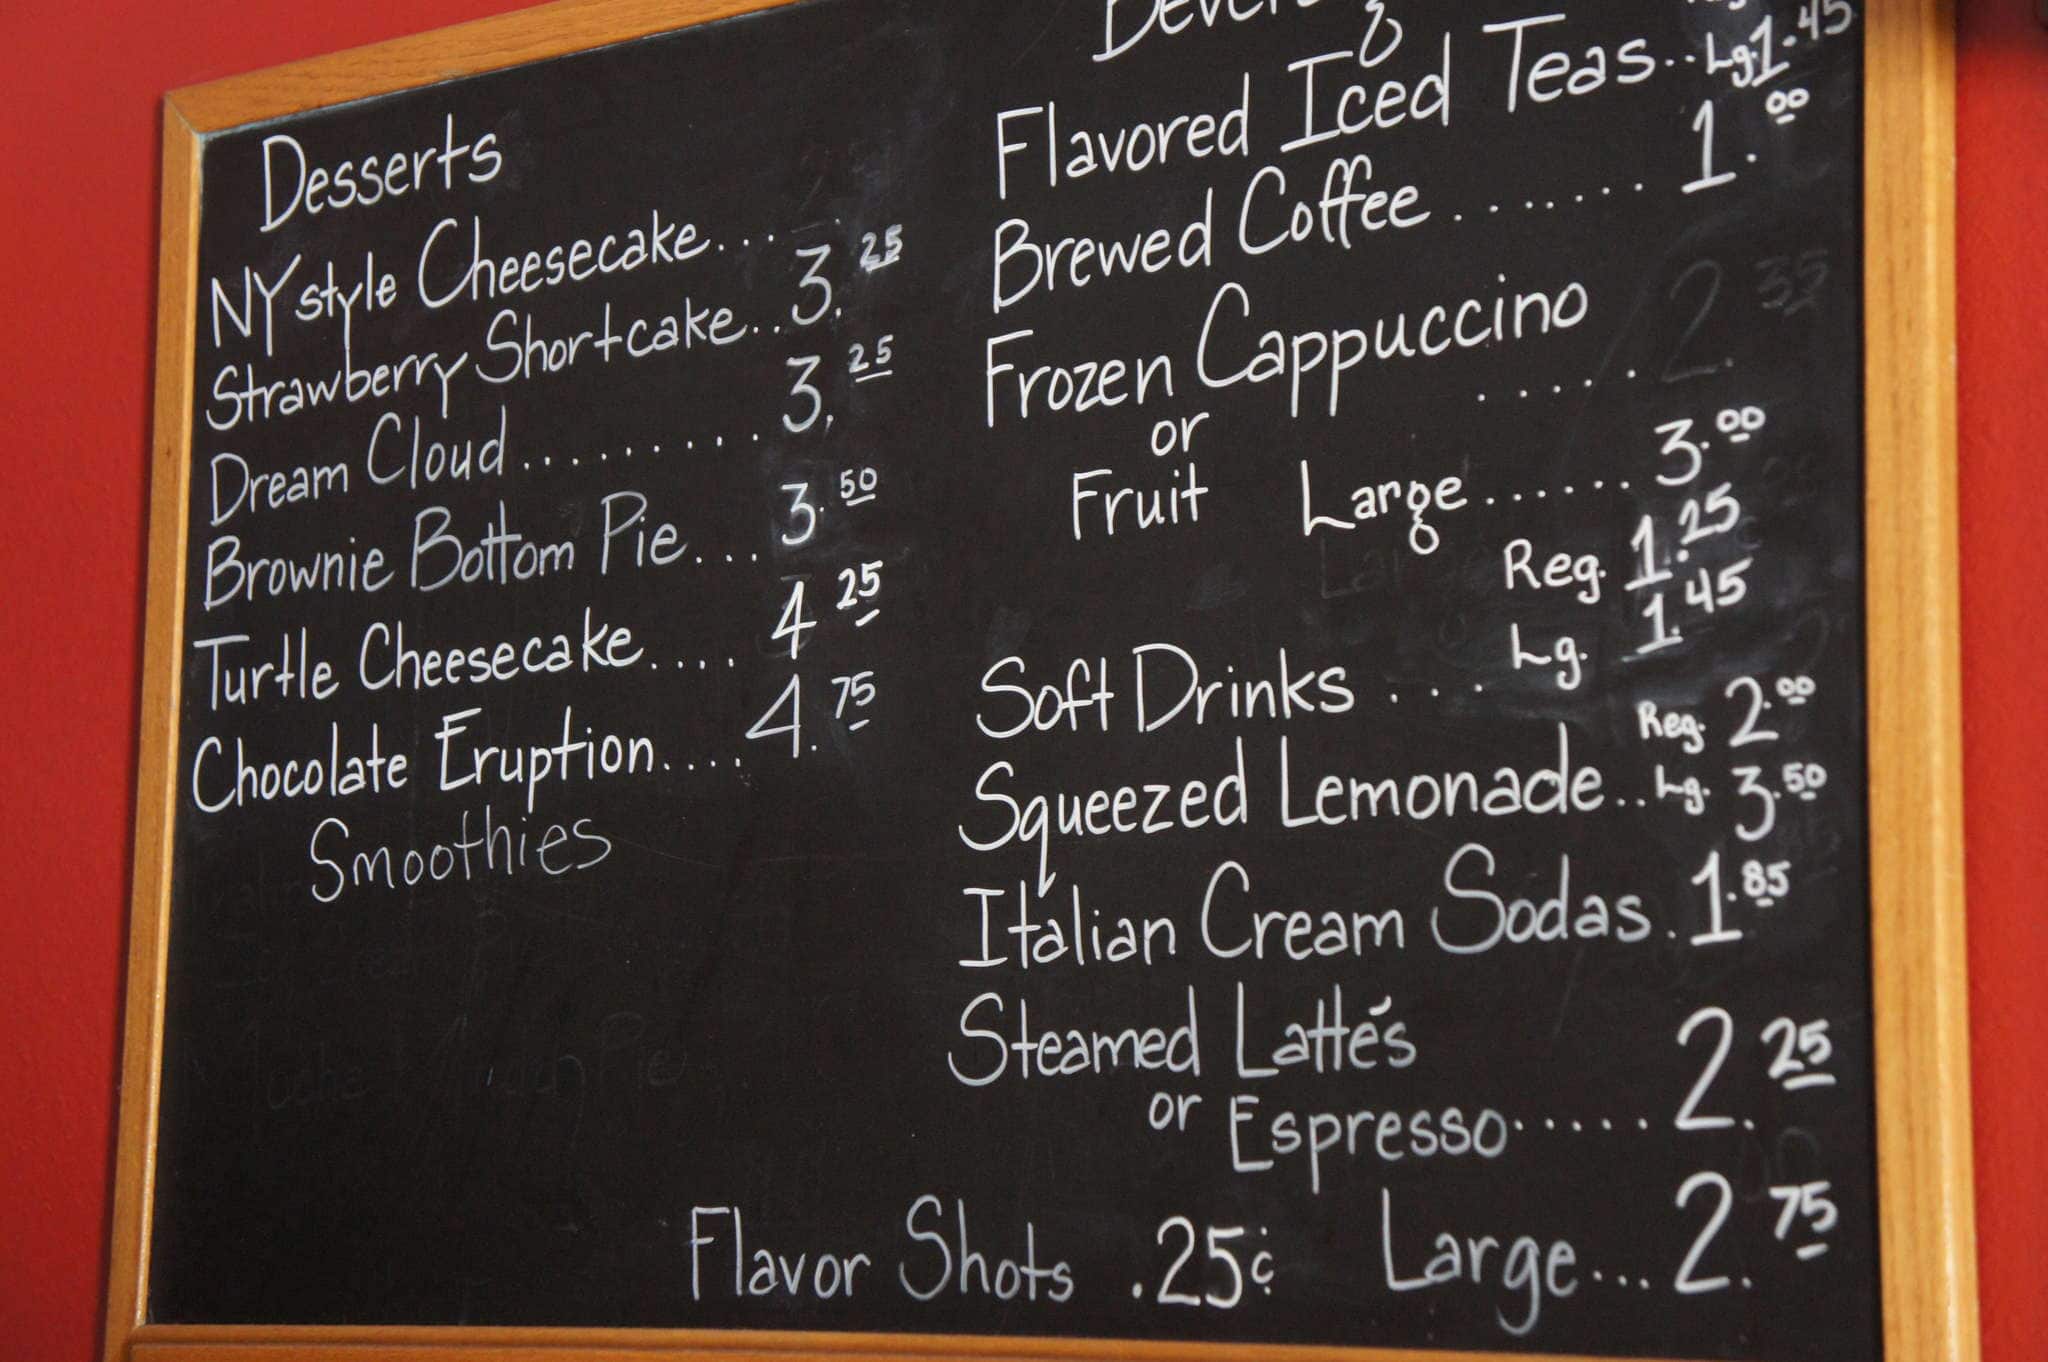 Desserts
NY style Cheesecake...
Strawberry Shortcake..3.25
Dream Cloud.........3.25
Brownie Bottom Pie...3.50
Turtle Cheesecake....4 25
Chocolate Eruption....4.75
Smoothies
Flavored Iced Teas..Lg.1.45
Brewed Coffee.......1.00
Frozen Cappuccino
.....2.35
or
Fruit Large......3.00
Reg. 1.25
Soft Drinks ... Lg. 1.45
Reg. 2.00
Squeezed Lemonade..Lg. 3.50
Italian Cream Sodas.1.85
Steamed Latté's
or Espresso.....2.25
Flavor Shots .25¢ Large...2.75